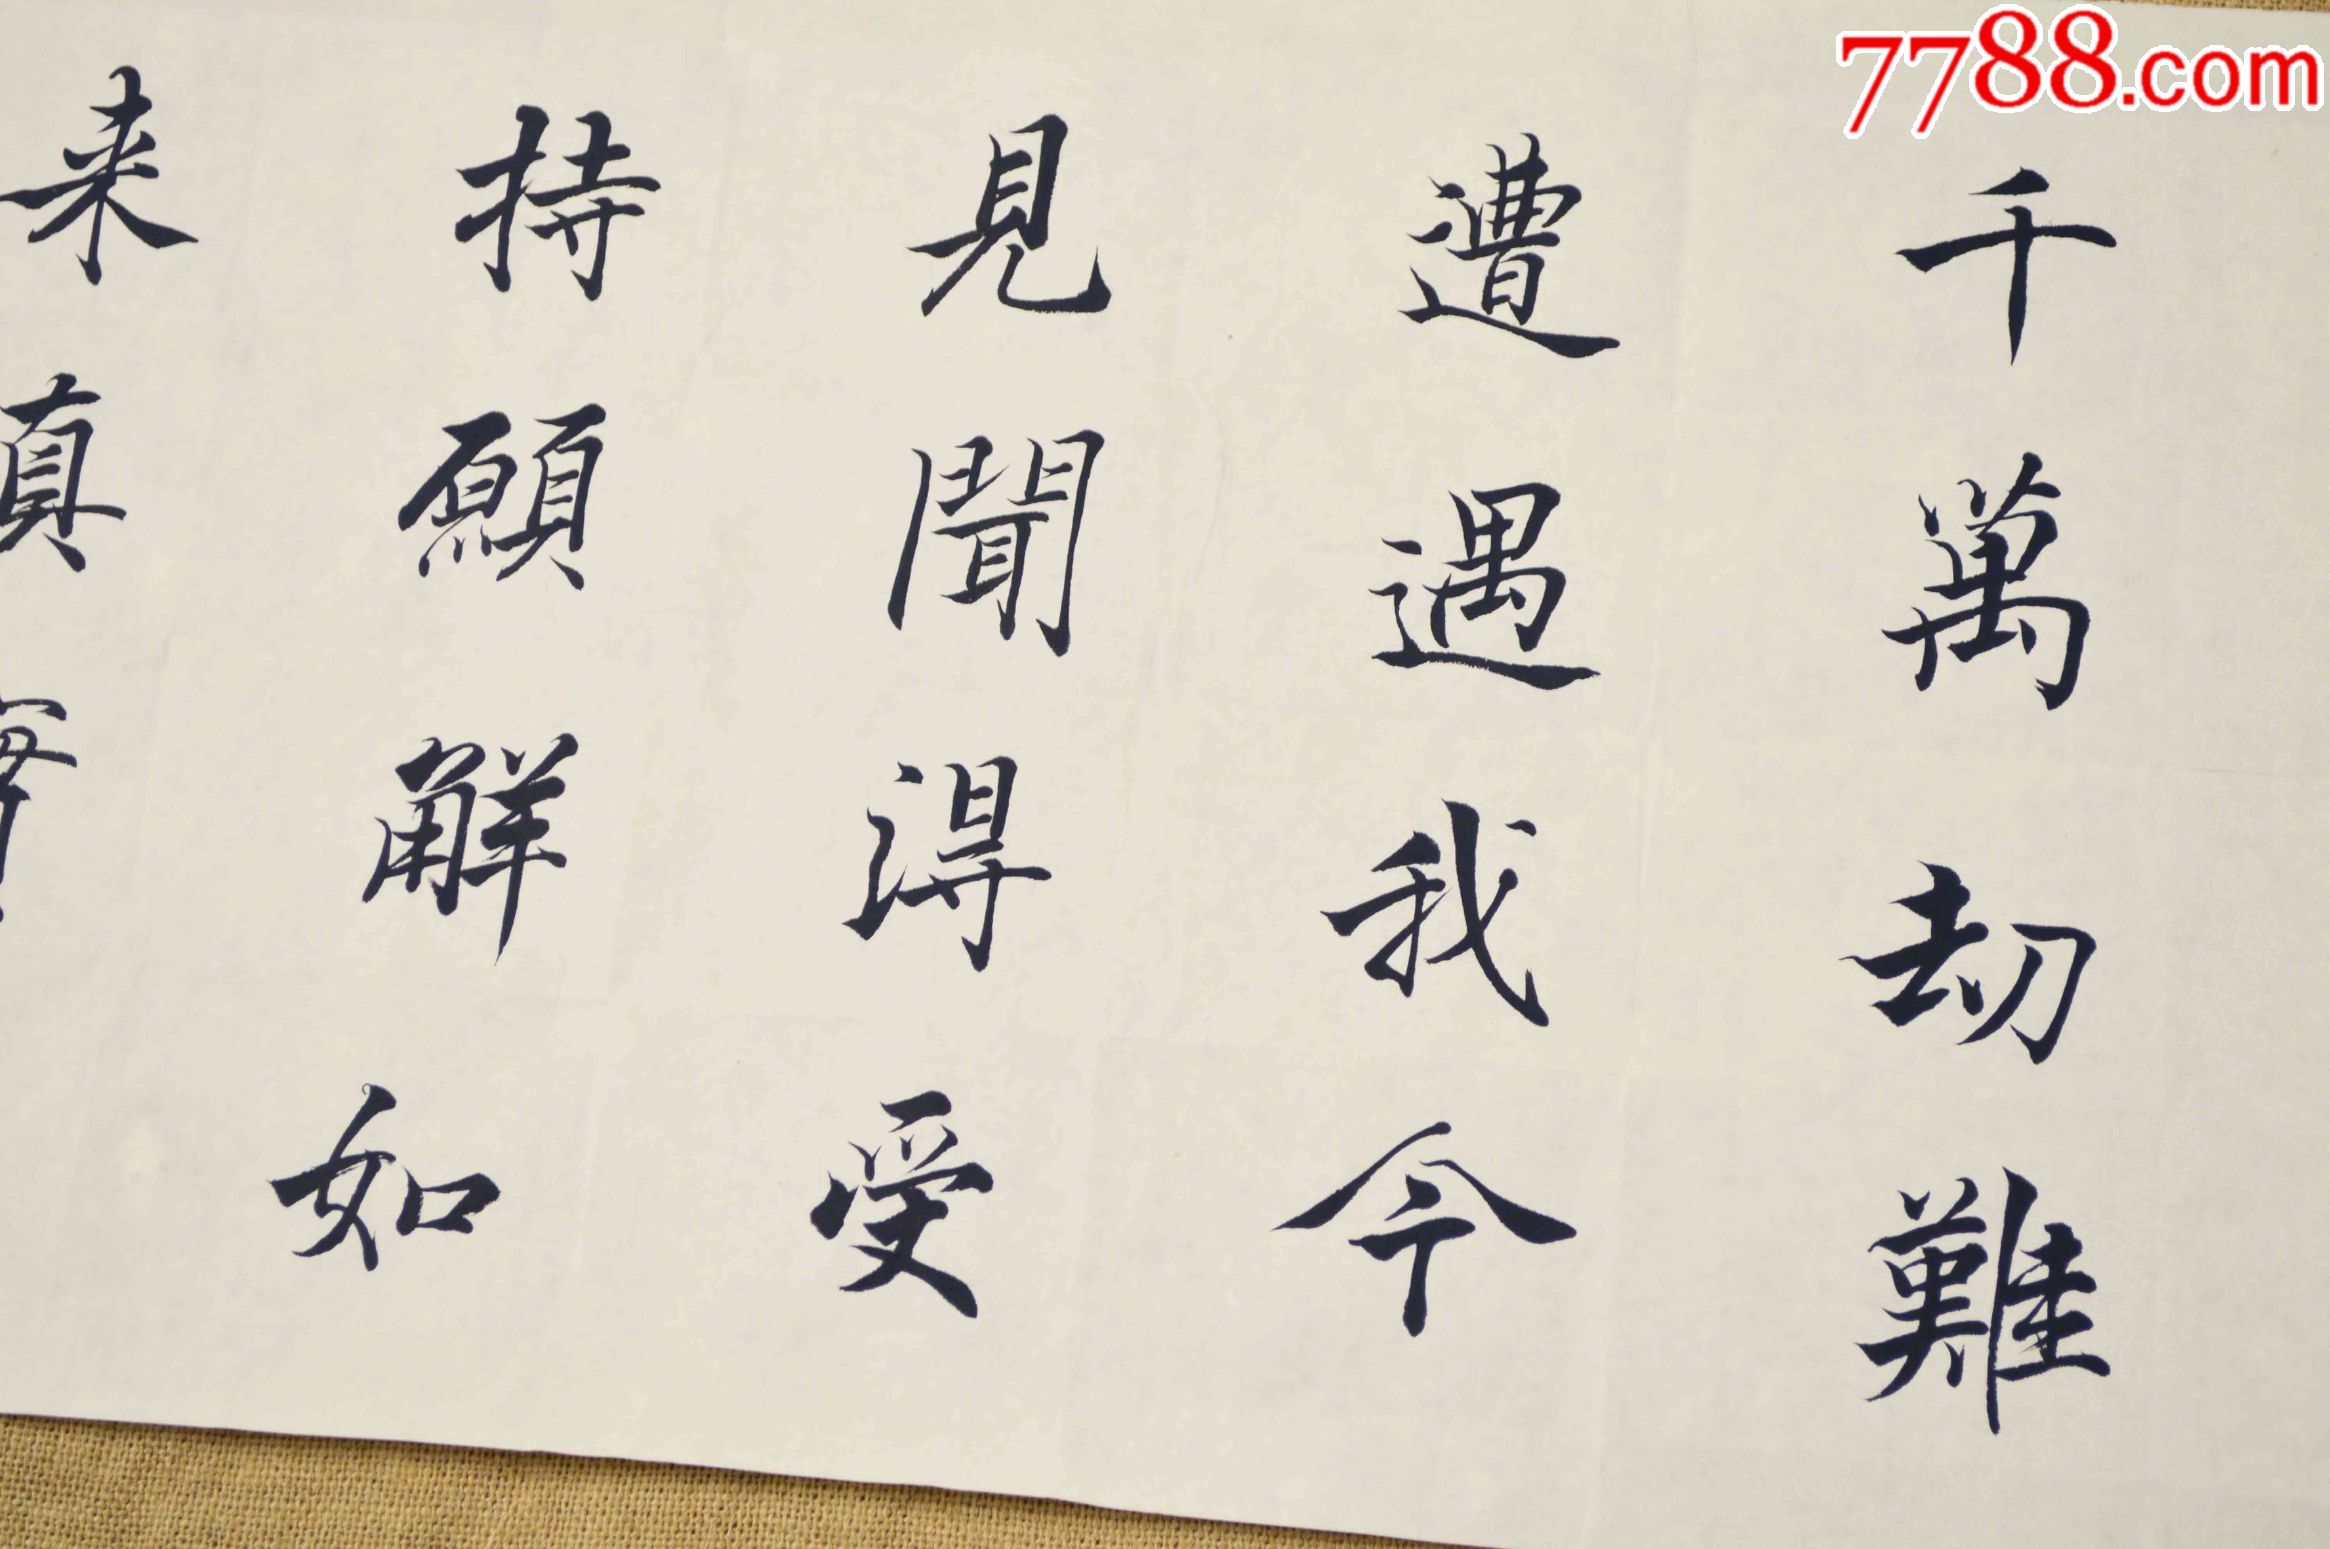 千萬劫難
遭遇我今
見聞得受
持願解如
来真實
7788.com